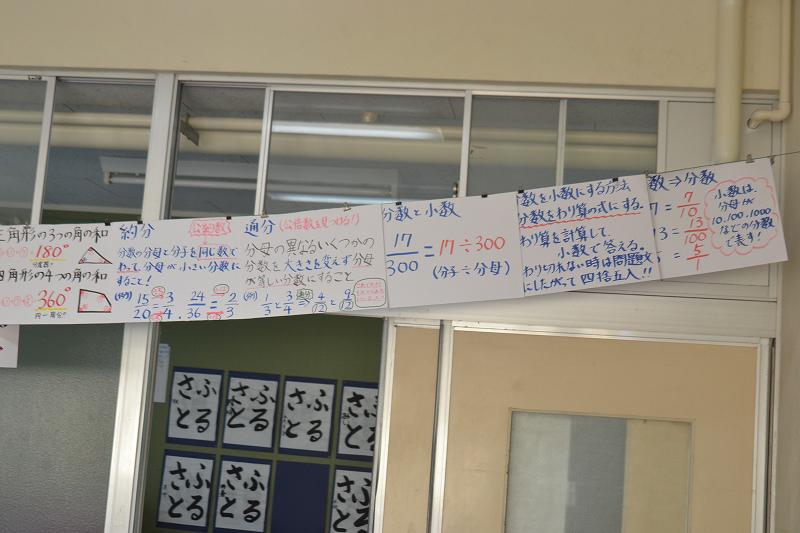 三角形の3つの角の和
180°
四角形の4つの角の和
360°
約分
公約数
分数の分母と分子を同じ数で
わって、分母が小さい分数に
すること!
(例) 15/20 = 3/4 . 24/36 = 2/3
通分 (公倍数を見つける!)
分母の異なるいくつかの
分数を大きさを変えず分母
が等しい分数にすること
(例) 1/3 と 3/4 ⇒ 4/12 9/12
分数と小数
17/300 = 17÷300
(分子÷分母)
数を小数にする方法
分数をわり算の式にする。
わり算を計算して、
小数で答える。
わりきれない時は問題文
にしたがって四捨五入!!
数⇒分数
7 = 7/10
3 = 13/100
= 5/1
小数は
分母が
10.100.1000
などの分数
で表す!
さふ
とる
さふ
とる
さふ
とる
さふ
とる
さふ
とる
さふ
とる
さふ
とる